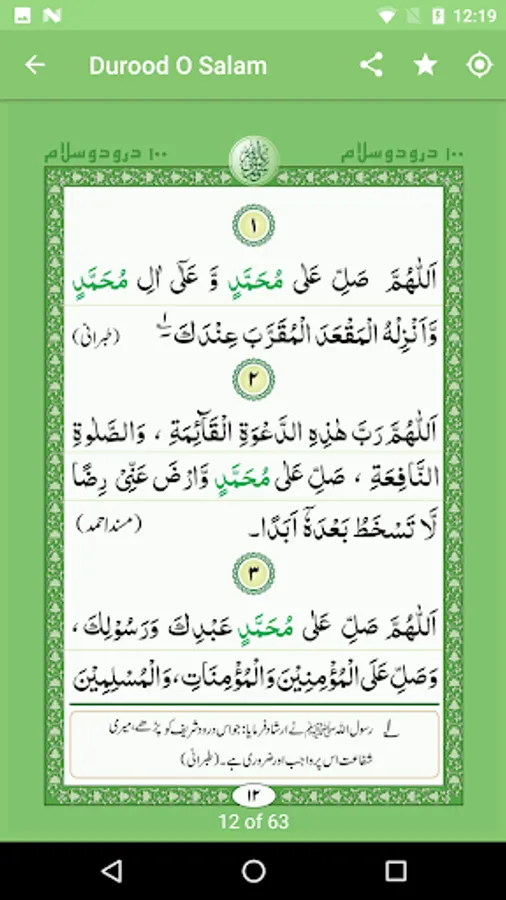 12:19
Durood O Salam
۱۰۰ درودوسلام ۱۰۰ درودوسلام
۱
اَللّٰهُمَّ صَلِّ عَلٰى مُحَمَّدٍ وَّ عَلٰٓى اٰلِ مُحَمَّدٍ
وَّاَنْزِلْهُ الْمَقْعَدَ الْمُقَرَّبَ عِنْدَكَ۔ (طبرانی)
۲
اَللّٰهُمَّ رَبَّ هٰذِهِ الدَّعْوَةِ الْقَآئِمَةِ ، وَالصَّلٰوةِ
النَّافِعَةِ ، صَلِّ عَلٰى مُحَمَّدٍ وَّارْضَ عَنِّىْ رِضًا
لَّا تَسْخَطُ بَعْدَهٗٓ اَبَدًا۔ (مسند احمد)
۳
اَللّٰهُمَّ صَلِّ عَلٰى مُحَمَّدٍ عَبْدِكَ وَرَسُوْلِكَ ،
وَصَلِّ عَلَى الْمُؤْمِنِيْنَ وَالْمُؤْمِنَاتِ ، وَالْمُسْلِمِيْنَ
لے رسول اللہ ﷺ نے ارشاد فرمایا: جو اس درود شریف کو پڑھے، میری
شفاعت اس پر واجب اور ضروری ہے۔ (طبرانی)
۱۲
12 of 63